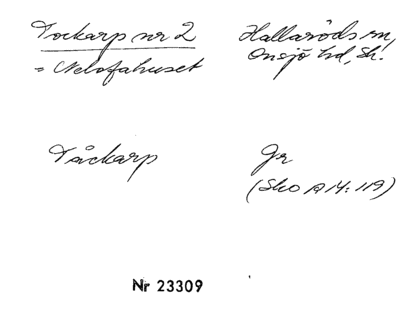 Tockarp nr 2
= Nelofahuset
Hallaröds sn,
Onsjö hd, Sk.
Tåckarp
Gr
(Sko A 14: 119)
Nr 23309